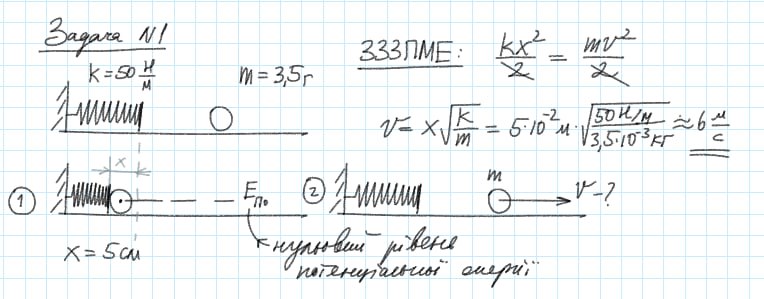 Задача N1
k=50 Н/м
m=3,5г
ЗЗЗПМЕ: kx²/2 = mv²/2
v = x√(k/m) = 5·10⁻²м·√(50Н/м / 3,5·10⁻³кг) ≈ 6 м/с
x
1
Eп₀
x = 5см
2
m
v-?
нульовий рівень
потенціальної енергії